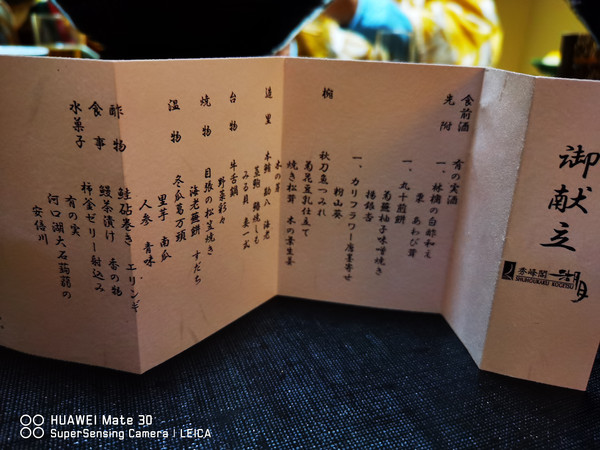 御献立
秀峰閣 湖月
SHUHOUKAKU KOGETSU
食前酒 有の実酒
先附 一、林檎の白酢和え
栗 あわび茸
一、丸十煎餅
菊蕪柚子味噌焼き
一、カリフラワー唐墨寄せ
粉山葵
椀 秋刀魚つみれ
菊花豆乳仕立て
焼き松茸 木の葉生姜
木の芽
造里 本鮪 勘八 海老
みる貝 妻一式
台物 牛舌鍋
野菜彩々
焼物 目張の松笠焼き
海老蕪餅 すだち
温物 冬瓜葛万頭
里芋 南瓜
人参 青味
酢物 鮭砧巻き エリンギ
食事 鰻茶漬け 香の物
水菓子 柿釜ゼリー射込み
有の実
河口湖大石蒟蒻の
安倍川
HUAWEI Mate 30
SuperSensing Camera | LEICA